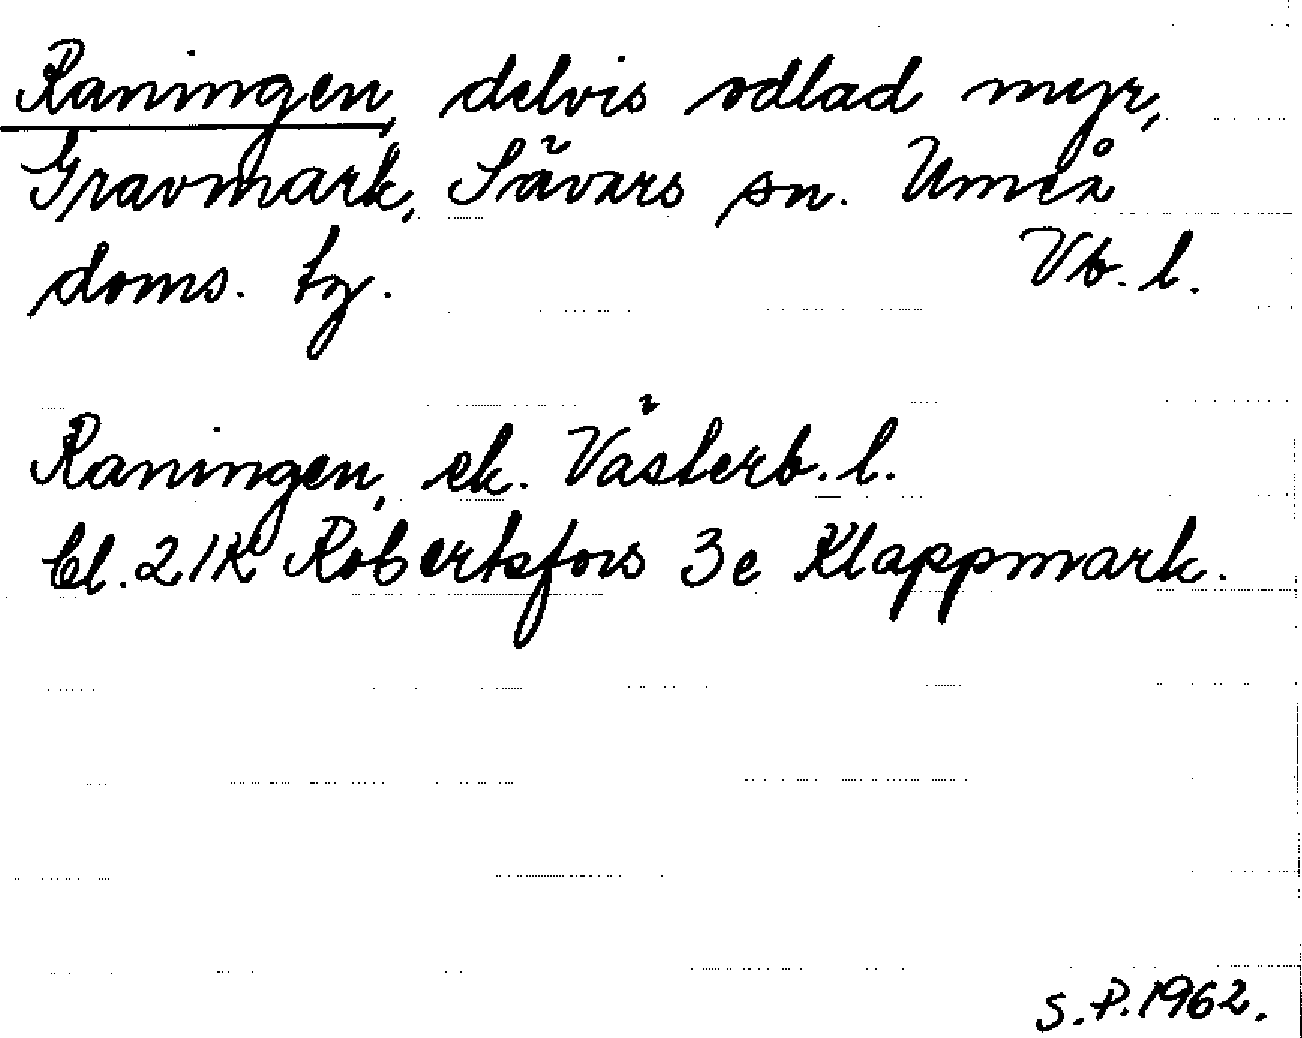 Raningen, delvis odlad myr,
Gravmark, Sävars sn. Umeå
doms. tg. Vb. l.
Raningen, ek. Västerb. l.
bl. 21K Robertsfors 3e Klappmark.
S.P. 1962.